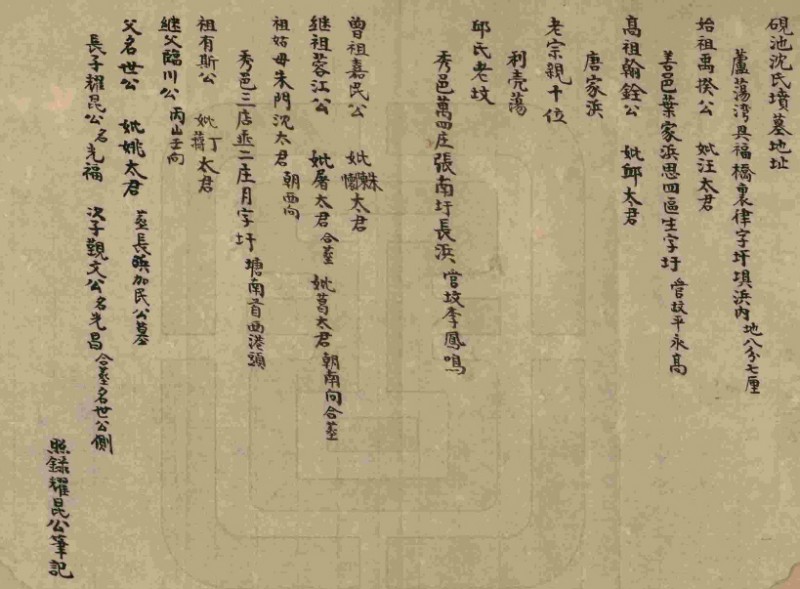 硯池沈氏墳墓地址
蘆蕩湾具福橋裏律字圩垻浜内 地八分七厘
始祖禹揆公 妣汪太君
善邑葉家浜思四區生字圩 管坟平永高
高祖翰銓公 妣邱太君
唐家浜
老宗親十位
利壳蕩
邱氏老坟
秀邑萬四庄張南圩長浜 管坟李鳳鳴
曾祖嘉民公 妣 太君
继祖蓉江公 妣屠太君 合墓 妣葛太君 朝南向合墓
祖姑母朱門沈太君 朝西向
秀邑三店 二庄月字圩 塘南首西港頭
祖有斯公 妣丁蔣太君
继父臨川公 丙山壬向
父名世公 妣姚太君 墓長浜加民公墓
長子耀昆公名光福 次子觀文公名光昌 合墓名世公側
照録耀昆公筆記